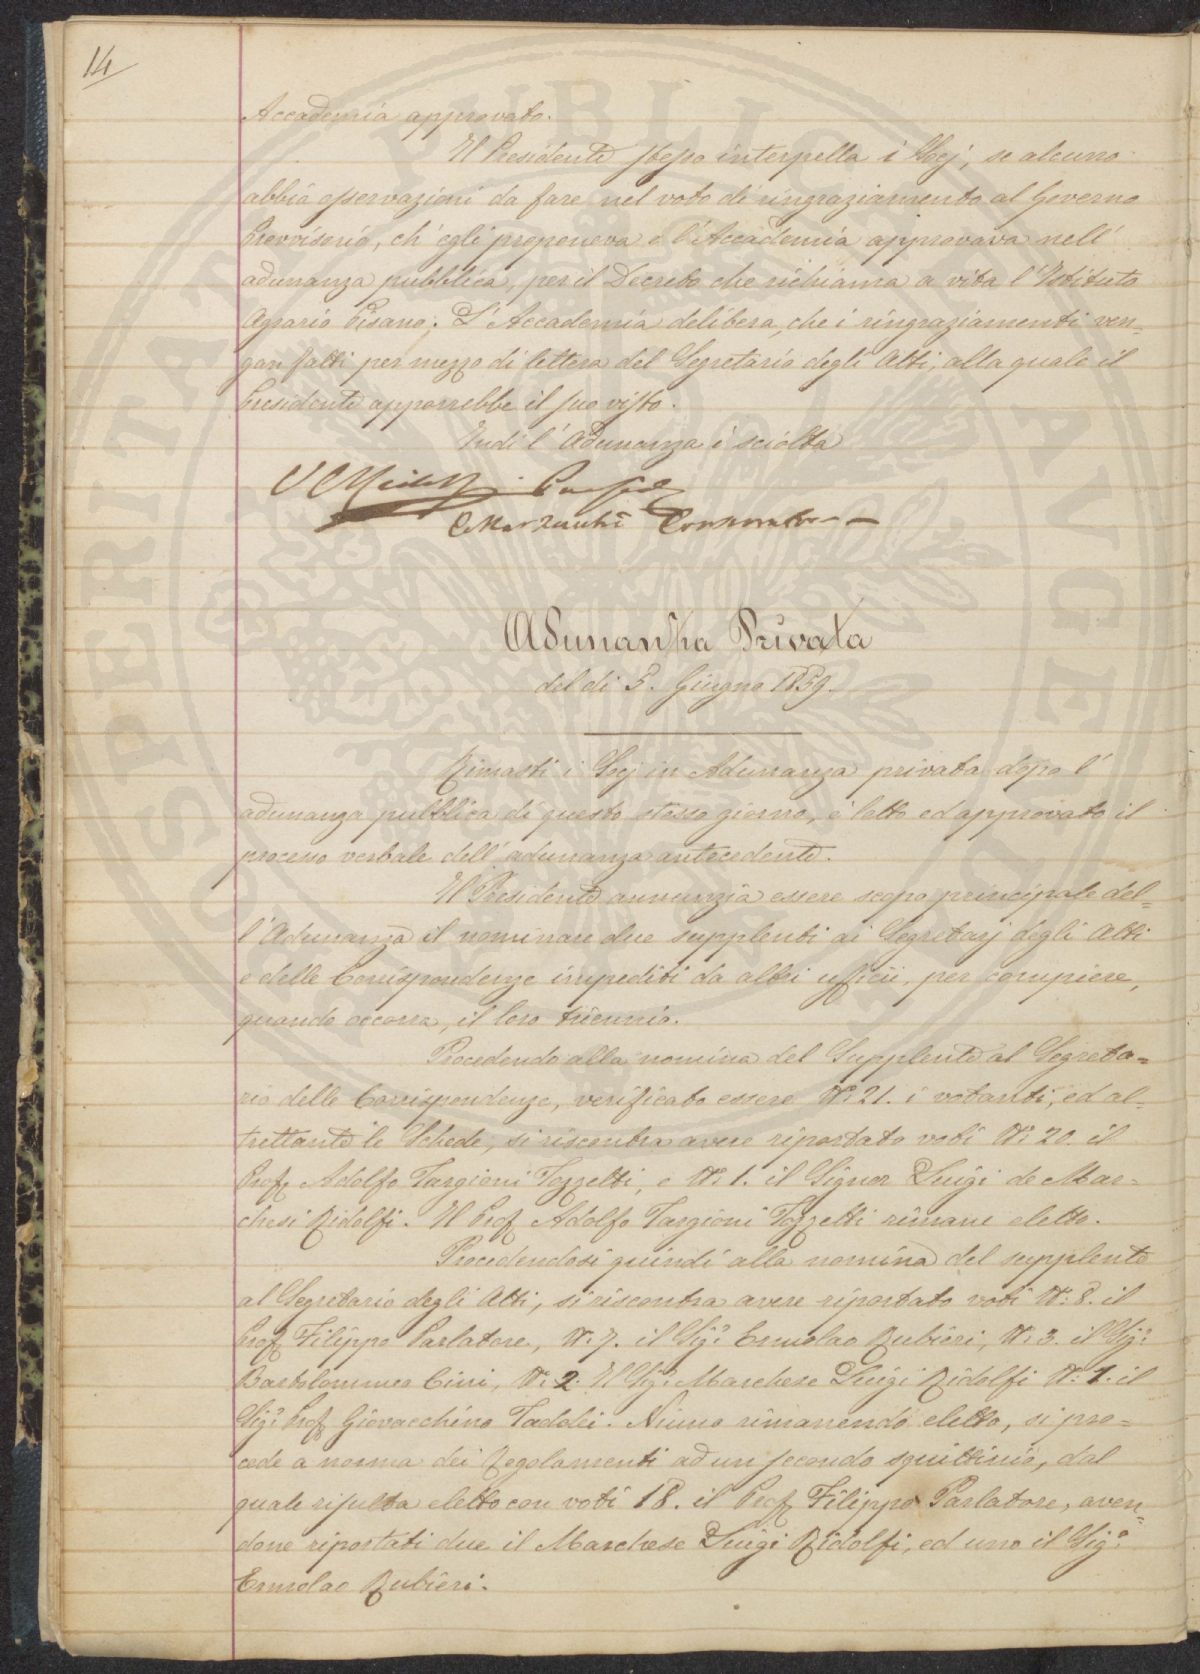 14
Accademia approvato.
Il Presidente stesso interpella i Socj, se alcuno
abbia osservazioni da fare nel voto di ringraziamento al Governo
Provvisorio, ch'egli proponeva e l'Accademia approvava nell'
adunanza pubblica, per il Decreto che richiama a vita l'Istituto
Agrario Pisano; L'Accademia delibera, che i ringraziamenti ven=
gan fatti per mezzo di lettera del Segretario degli Atti, alla quale il
Presidente apporrebbe il suo visto.
Indi l'Adunanza è sciolta
Adunanza Privata
del dì 5. Giugno 1859.
Rimasti i Socj in Adunanza privata dopo l'
adunanza pubblica di questo stesso giorno, è letto ed approvato il
processo verbale dell'adunanza antecedente.
Il Presidente annunzia essere scopo principale del=
l'Adunanza il nominare due supplenti ai Segretarj degli Atti
e delle Corrispondenze impediti da altri ufficii, per compiere,
quando occorra, il loro triennio.
Procedendo alla nomina del Supplente al Segreta=
rio delle Corrispondenze, verificato essere N: 21. i votanti, ed al=
trettante le Schede, si riscontra avere riportato voti N: 20. il
Prof. Adolfo Targioni Tozzetti, e N: 1. il Signor Luigi de Mar=
chesi Ridolfi. Il Prof. Adolfo Targioni Tozzetti rimane eletto.
Procedendosi quindi alla nomina del supplente
al Segretario degli Atti, si riscontra avere riportato voti N: 8. il
Prof. Filippo Parlatore, N: 7. il Sig.r Ermolao Rubieri, N: 3. il Sig.r
Bartolommeo Cini, N: 2. Il Sig: Marchese Luigi Ridolfi N: 1. il
Sig.r Prof. Giovacchino Taddei. Niuno rimanendo eletto, si pro=
cede a norma dei Regolamenti ad un secondo squittinio, dal
quale risulta eletto con voti 18. il Prof. Filippo Parlatore, aven=
done riportati due il Marchese Luigi Ridolfi, ed uno il Sig.r
Ermolao Rubieri.